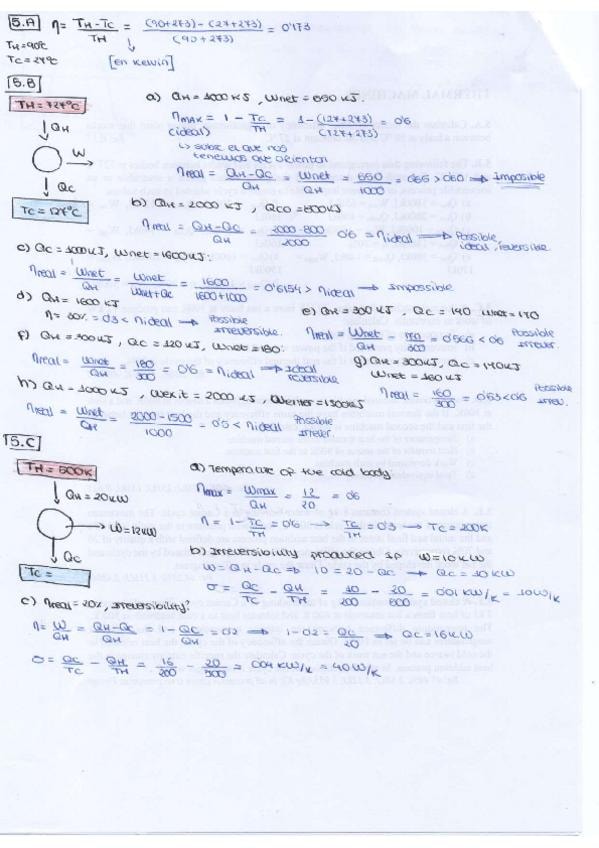 5.A η = TH-TC / TH = (90+273)-(27+273) / (90+273) = 0'173
TH=90ºC
TC=27ºC [en Kelvin]
5.B
TH=727ºC
QH
W
QC
TC=127ºC
a) QH=1000 KJ, Wnet=650 KJ.
ηmax = 1 - TC/TH = 1 - (127+273)/(727+273) = 0'6
(ideal)
↳ sobre el que nos
tenemos que orientar
ηreal = QH-QC / QH = Wnet / QH = 650 / 1000 = 0'65 > 0'60 → Impossible
b) QH=2000 KJ, QC=800KJ
ηreal = QH-QC / QH = 2000-800 / 2000 = 0'6 = ηideal → Possible
ideal, reversible.
c) QC=1000KJ, Wnet=1600KJ:
ηreal = Wnet / QH = Wnet / Wnet+QC = 1600 / 1600+1000 = 0'6154 > ηideal → Impossible
d) QH=1600 KJ
η=30% = 0'3 < ηideal → Possible
Irreversible.
e) QH=300 KJ, QC=140 Wnet=170
ηreal = Wnet / QH = 170 / 300 = 0'566 < 0'6 Possible
Irrever.
f) QH=300KJ, QC=120 KJ, Wnet=180:
ηreal = Wnet / QH = 180 / 300 = 0'6 = ηideal → Ideal
reversible
g) QH=300KJ, QC=140KJ
Wnet=160 KJ
ηreal = 160 / 300 = 0'53 < 0'6 Possible
Irrev.
h) QH=1000 KJ, Wexit=2000 KJ, Wenter=1500KJ
ηreal = Wnet / QH = 2000-1500 / 1000 = 0'5 < ηideal Possible
Irrever.
5.C
TH=500K
QH=20KW
W=12KW
QC
TC=
a) Temperature of the cold body:
ηmax = Wmax / QH = 12 / 20 = 0'6
η = 1 - TC/TH = 0'6 → TC/TH = 0'4 → TC=200K
b) Irreversibility produced if W=10KW
W=QH-QC ⇒ 10=20-QC → QC=10KW
σ = QC/TC - QH/TH = 10/200 - 20/500 = 0'01 KW/K = 10W/K
c) ηreal=20%, irreversibility?
η = W/QH = QH-QC / QH = 1 - QC/QH = 0'2 → 1-0'2 = QC/20 → QC=16KW
σ = QC/TC - QH/TH = 16/200 - 20/500 = 0'04 KW/K = 40W/K